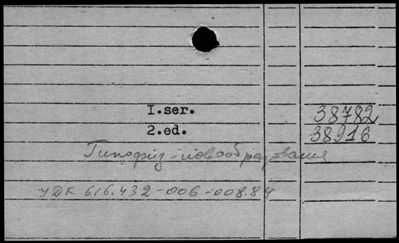 I.ser. 38782
2.ed. 38916
Гипофиз-новообразования
УДК 616.432-006-008.84